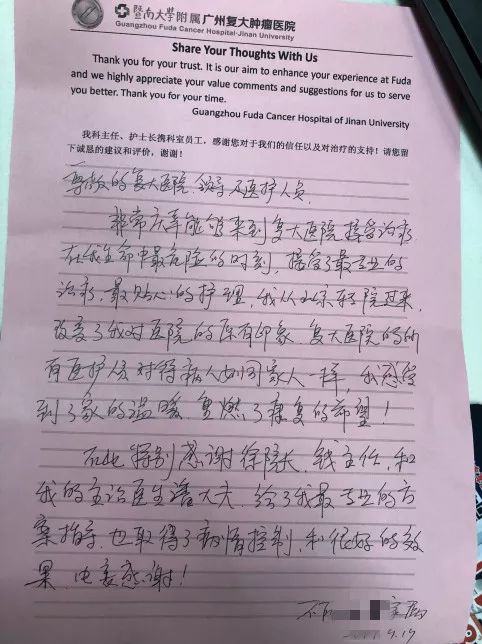 暨南大學附属广州复大肿瘤医院
Guangzhou Fuda Cancer Hospital·Jinan University
Share Your Thoughts With Us
Thank you for your trust. It is our aim to enhance your experience at Fuda
and we highly appreciate your value comments and suggestions for us to serve
you better. Thank you for your time.
Guangzhou Fuda Cancer Hospital of Jinan University
我科主任、护士长携科室员工,感谢您对于我们的信任以及对治疗的支持!请您留
下诚恳的建议和评价,谢谢!
尊敬的复大医院领导及医护人员
非常庆幸能够来到复大医院接受治疗
在我生命中最危险的时刻,接受了最专业的
治疗,最贴心的护理,我从北京转院过来,
改变了我对医院的原有印象,复大医院的所
有医护人员对待病人如同家人一样,我感受
到了家的温暖,重燃了康复的希望!
在此特别感谢徐院长,钱主任,和
我的主治医生潘大夫,给了我最专业的方
案指导,也取得了病情控制,和很好的效
果,由衷感谢!
家属
9.19